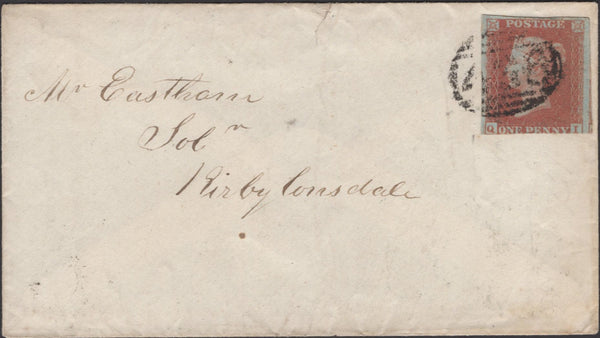 Mr Eastham
Solr
Kirby Lonsdale
POSTAGE
ONE PENNY